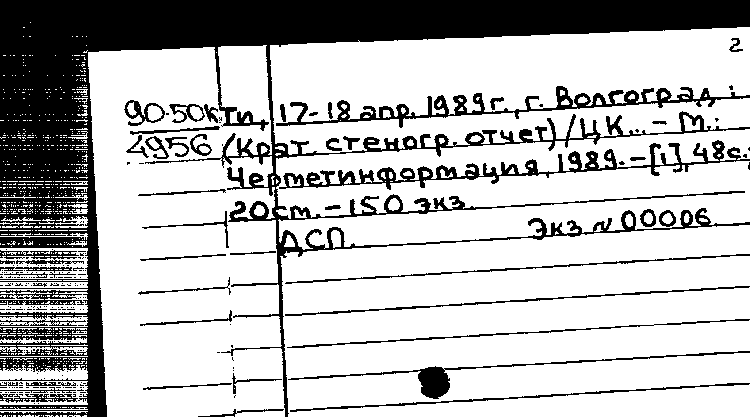 2
90-50к ти, 17-18 апр. 1989г., г. Волгоград :
4956 (Крат. стеногр. отчет) / ЦК... - М.:
Черметинформация, 1989. - [1], 48 с.;
20 cm. - 150 экз.
ДСП. Экз № 00006